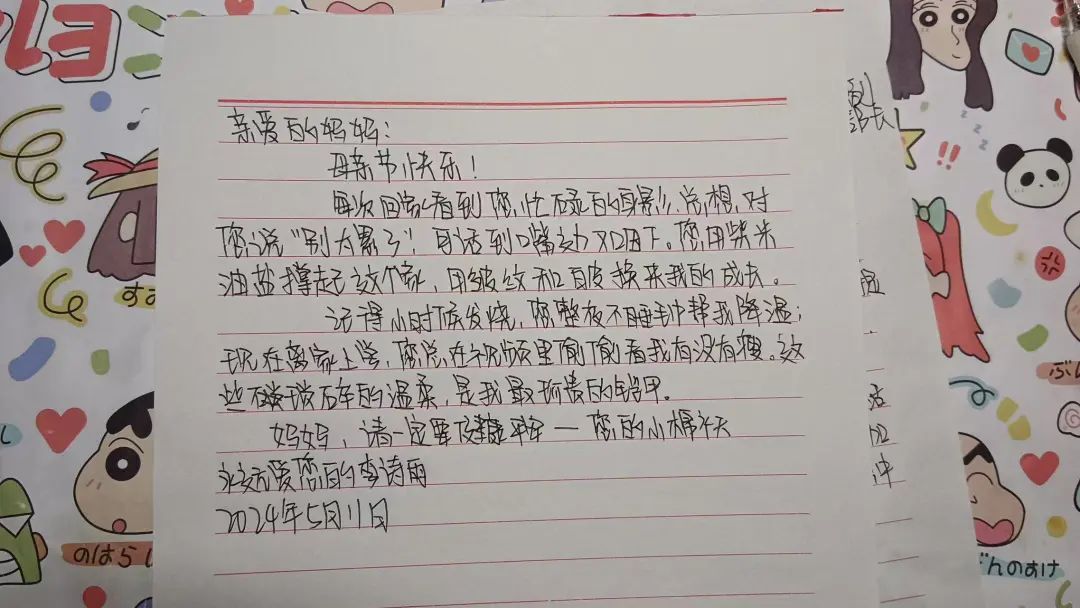 亲爱的妈妈：
母亲节快乐！
每次回家看到您忙碌的身影，总想对
您说“别太累了”，可话到嘴边又咽下。您用柴米
油盐撑起这个家，用皱纹和白发换来我的成长。
记得小时候发烧，您整夜不睡帮我降温；
现在离家上学，您总在视频里偷偷看我有没有瘦。这
些琐碎的温柔，是我最珍贵的铠甲。
妈妈，请一定要健康平安——您的小棉袄
永远爱您的李诗雨
2024年5月11日
副
部长
のはら
ぶん
ぶんのすけ